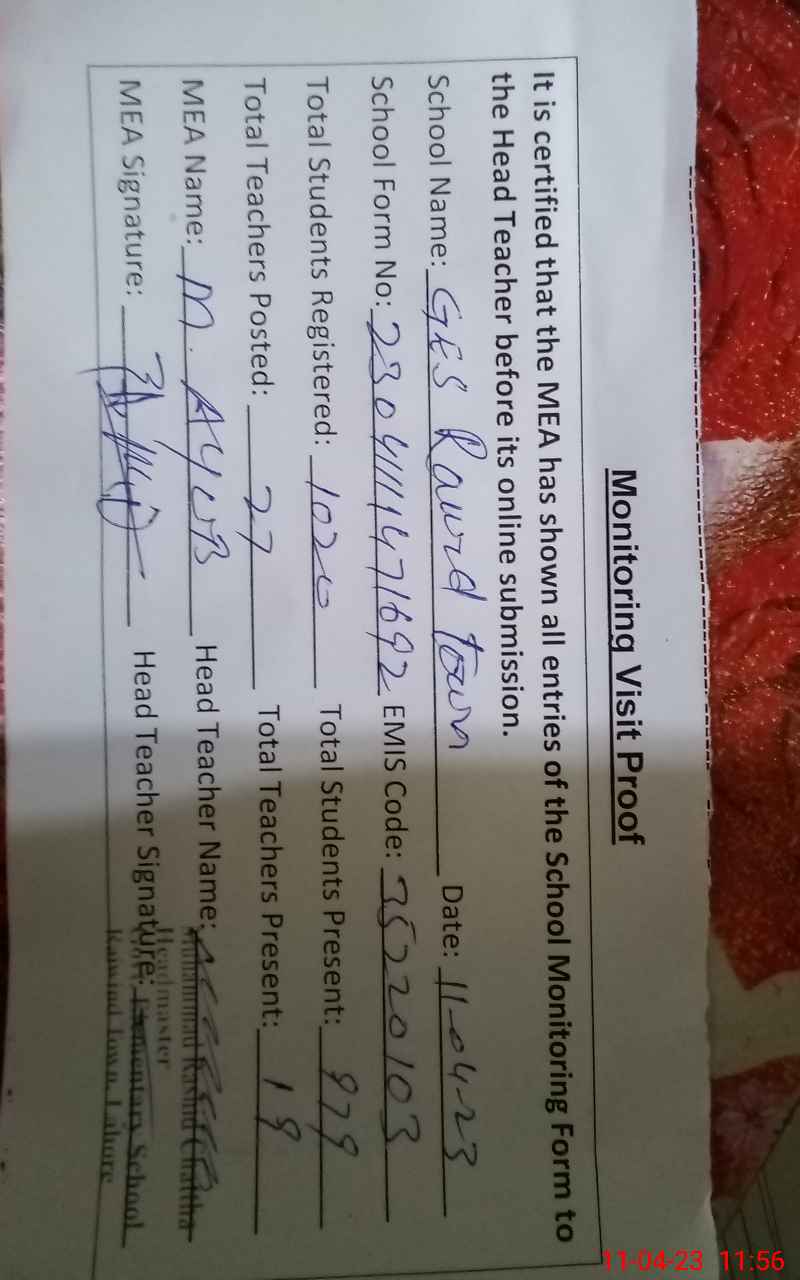 Monitoring Visit Proof
It is certified that the MEA has shown all entries of the School Monitoring Form to
the Head Teacher before its online submission.
School Name: GES Rawnd Town Date: 11-04-23
School Form No: 2304111471692 EMIS Code: 35220103
Total Students Registered: 1020 Total Students Present: 979
Total Teachers Posted: 27 Total Teachers Present: 19
MEA Name: M. Ayub Head Teacher Name:
Muhammad Rashid Chattha
Headmaster
MEA Signature: Head Teacher Signature:
Elementary School
Raiwind Town, Lahore
11-04-23 11:56